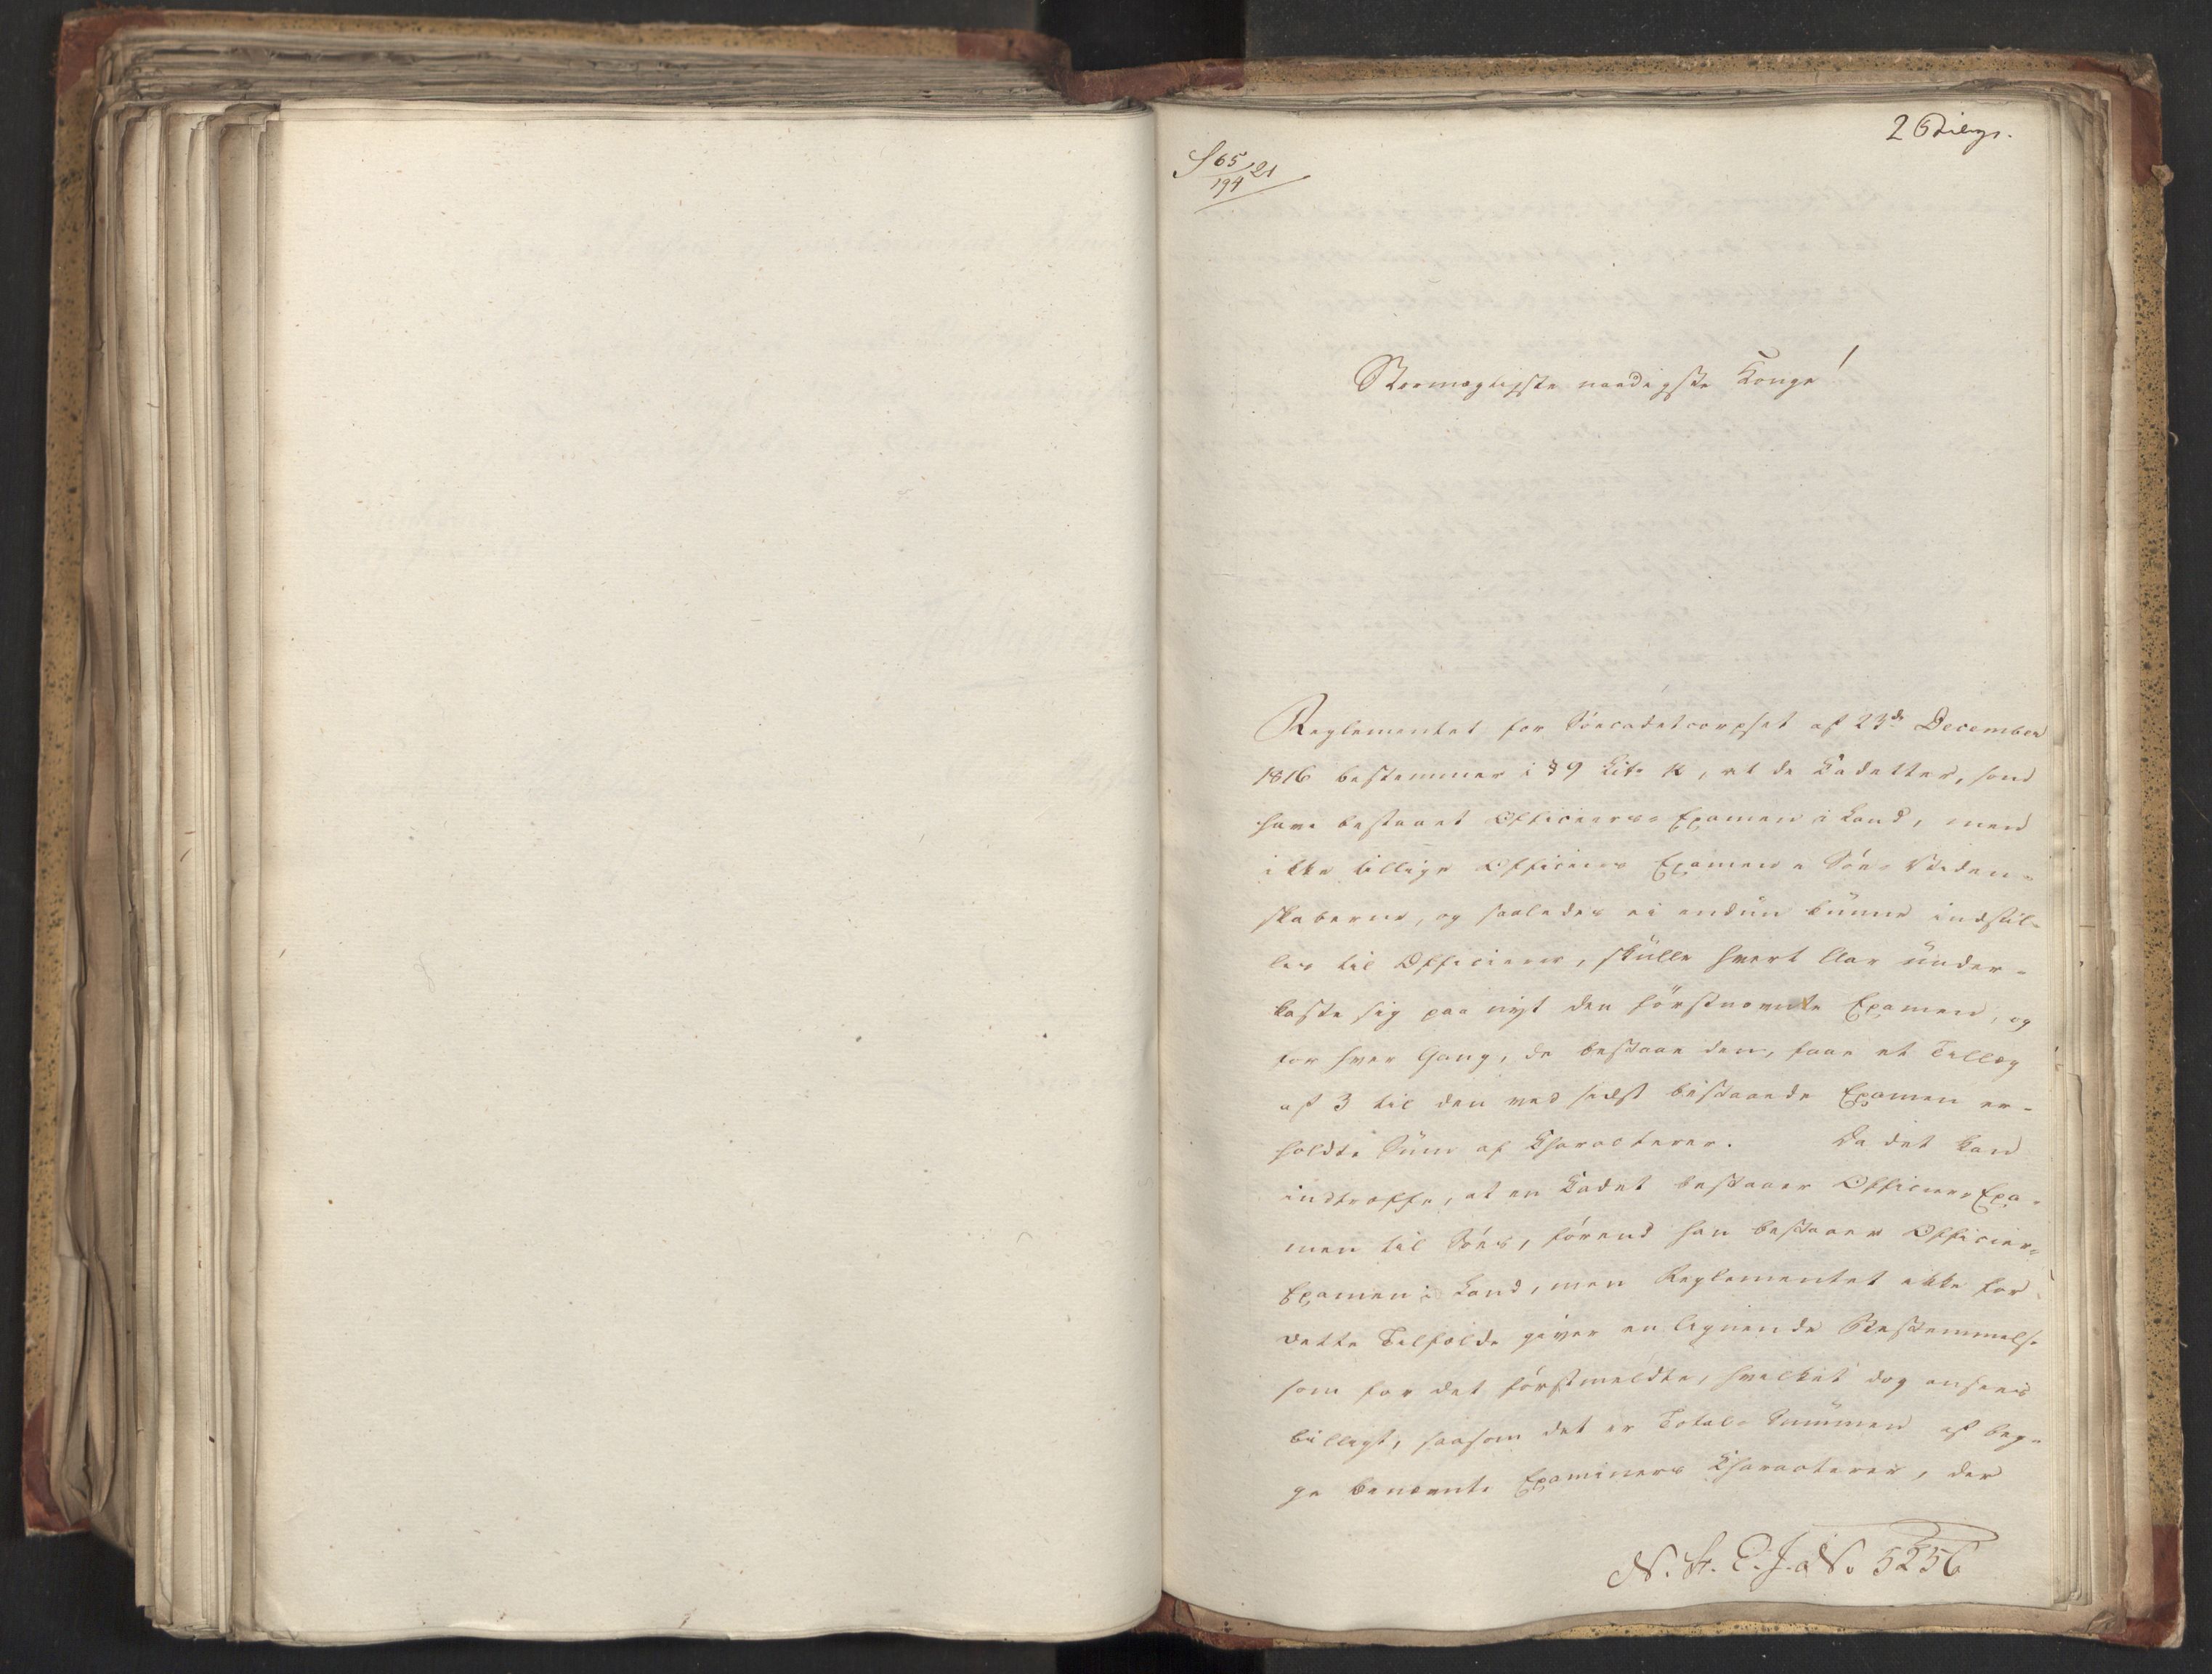 2 Bilag.
S 65/194 21
Stormægtigste naadigste Konge!
Reglementet for Söecadetcorpset af 23de December
1816 bestemmer i § 9 Lit. k, at de Cadetter, som
have bestaaet Officeers-Examen i Land, men
ikke tillige Officeers Examen i Söe-Viden-
skaberne, og saaledes ei endnu kunne indstil-
les til Officierer, skulle hvert Aar under-
kaste sig paa nyt den förstnævnte Examen, og
for hver Gang, de bestaae den, faae et Tillæg
af 3 til den ved sidst bestaaede Examen er-
holdte Sum af Characterer. Da det kan
indtræffe, at en Cadet bestaaer Officeers Exa-
men til Söes, förend han bestaaer Officier-
Examen i Land, men Reglementet ikke for
dette Tilfælde giver en lignende Bestemmelse
som for det förstmeldte, hvilket dog ansees
billigt, saasom det er Total-Summen af beg-
ge benævnte Examiners Characterer, der
N. St. E. J. No. 5256